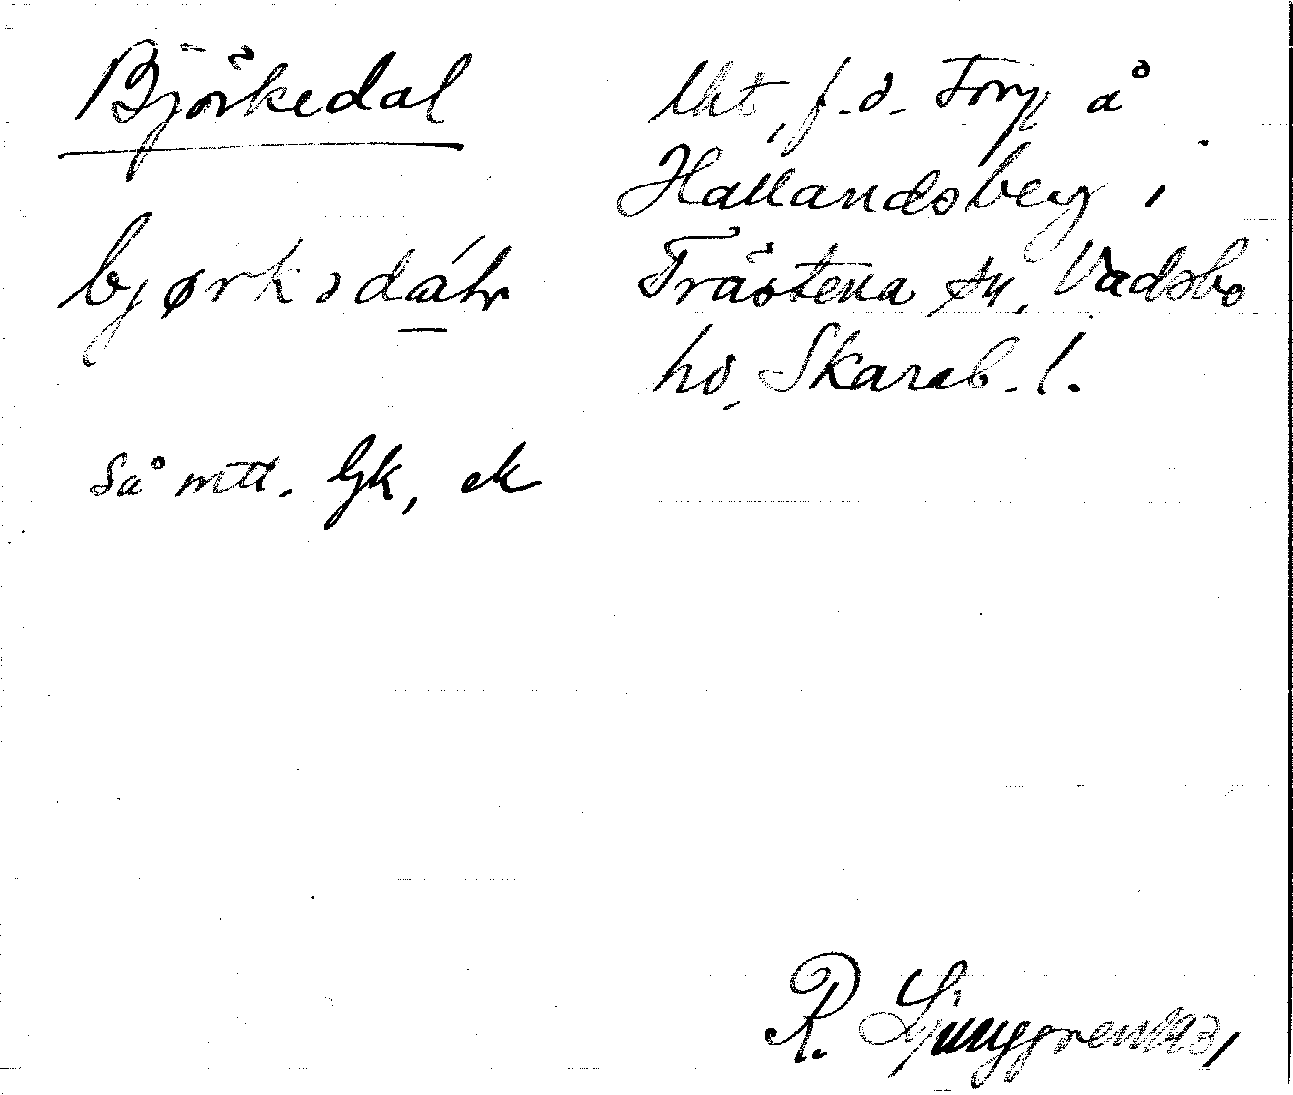 Björkedal
bjørksdáhr
Så mtl. Gk, ek
lht, f.d. Torp å
Hallandsberg i
Trästena sn, Vadsbo
hd, Skarab. l.
R. Ljunggren 1931